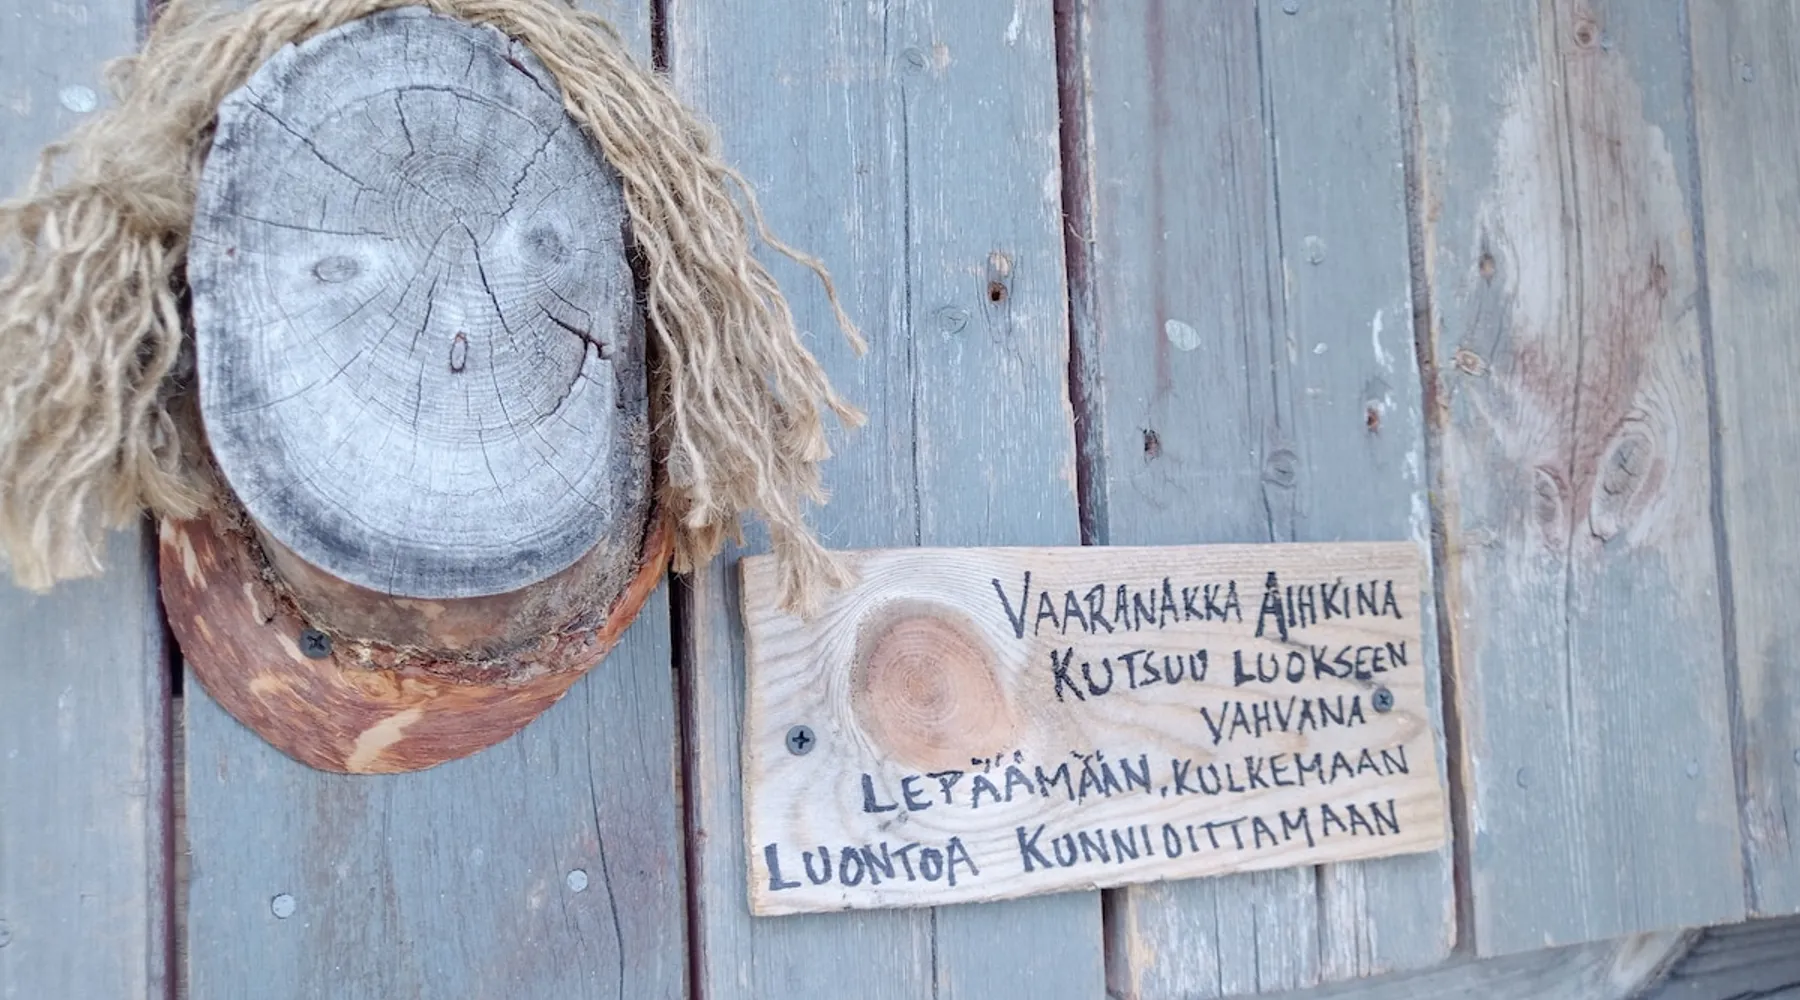 VAARANAKKA AIHKINA
KUTSUU LUOKSEEN
VAHVANA
LEPÄÄMÄÄN, KULKEMAAN
LUONTOA KUNNIOITTAMAAN